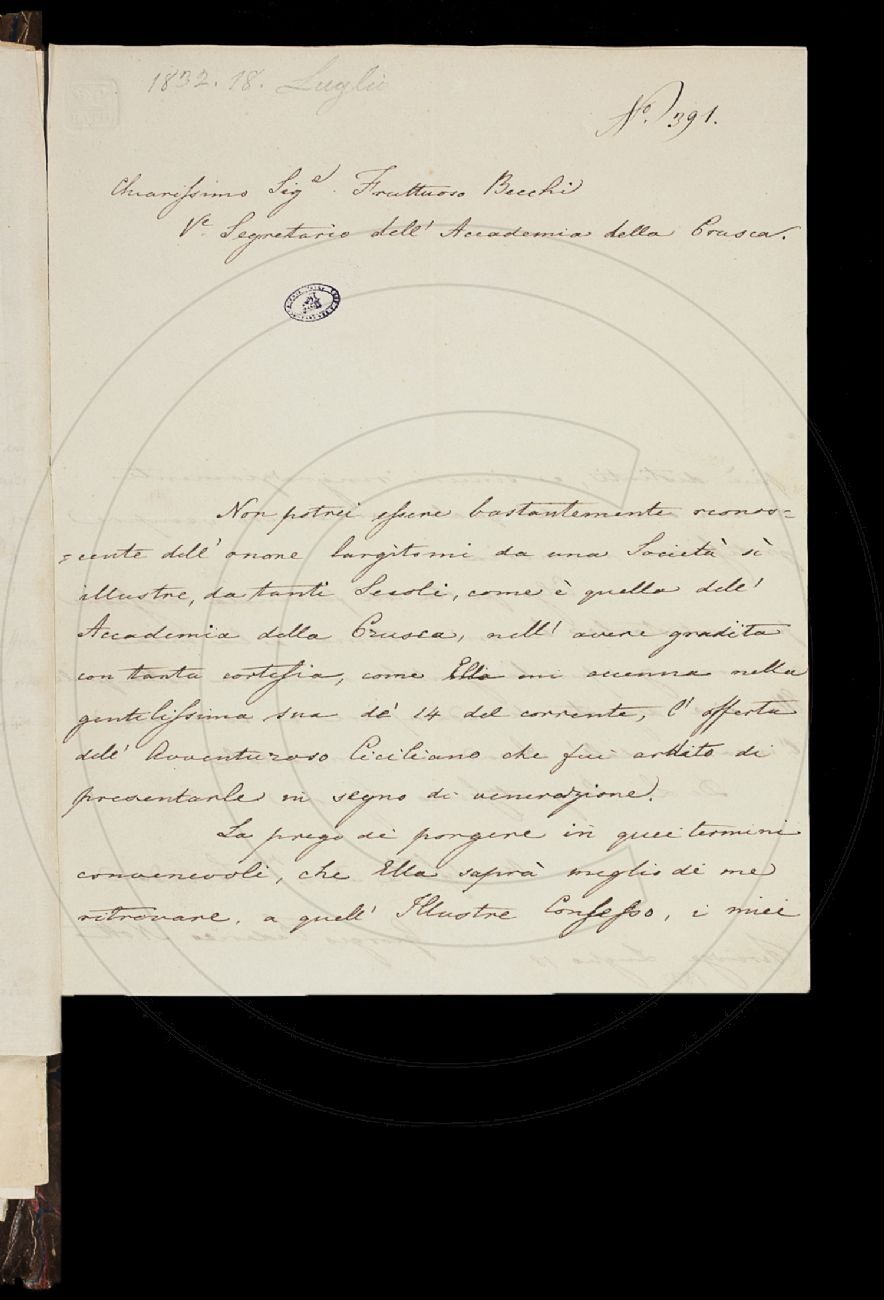 1832. 18. Luglio
N.° 391.
Chiarissimo Sig.e Fruttuoso Becchi
V.e Segretario dell' Accademia della Crusca.
Non potrei essere bastantemente ricono=
=cente dell' onore largitomi da una Società sì
illustre, da tanti Secoli, come è quella dell'
Accademia della Crusca, nell' avere gradita
con tanta cortesia, come Ella mi accenna nella
gentilissima sua de' 14 del corrente, l' offerta
dell' Avventuroso Ciciliano che fui ardito di
presentarle in segno di venerazione.
La prego di porgere in quei termini
convenevoli, che Ella saprà meglio di me
ritrovare, a quell' Illustre Consesso, i miei